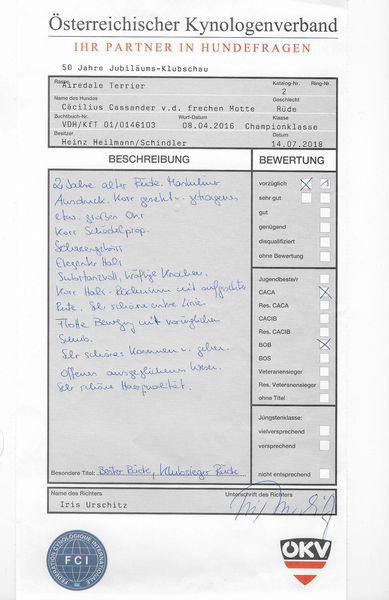 Österreichischer Kynologenverband
IHR PARTNER IN HUNDEFRAGEN
50 Jahre Jubiläums-Klubschau
Rasse Katalog-Nr. Ring-Nr.
Airedale Terrier 2
Name des Hundes Geschlecht
Cäcilius Cassander v.d. frechen Motte Rüde
Zuchtbuch-Nr. Wurf-Datum Klasse
VDH/KfT 01/0146103 08.04.2016 Championklasse
Besitzer Datum
Heinz Heilmann/Schindler 14.07.2018
BESCHREIBUNG BEWERTUNG
2 Jahre alter Rüde. Maskuliner
Ausdruck. Korr gesetzt u. getragenes
etw. großes Ohr
Korr Schädelprop.
Scherengebiss
Eleganter Hals
Substanzvoll, kräftige Knochen.
Korr Hals-Rückenlinie mit aufgesetzter
Rute. Sehr schöne untere Linie.
Flotte Bewegung mit vorzüglichem
Schub.
Sehr schönes Kommen u. gehen.
Offenes ausgeglichenes Wesen.
Sehr schöne Haarqualität.
Besondere Titel: Bester Rüde, Klubsieger Rüde
vorzüglich 1
sehr gut
gut
genügend
disqualifiziert
ohne Bewertung
Jugendbeste/r
CACA
Res. CACA
CACIB
Res. CACIB
BOB
BOS
Veteranensieger
Res. Veteranensieger
ohne Titel
Jüngstenklasse:
vielversprechend
versprechend
nicht entsprechend
Name des Richters Unterschrift des Richters
Iris Urschitz
FEDERATION CYNOLOGIQUE INTERNATIONALE
FCI
ÖKV